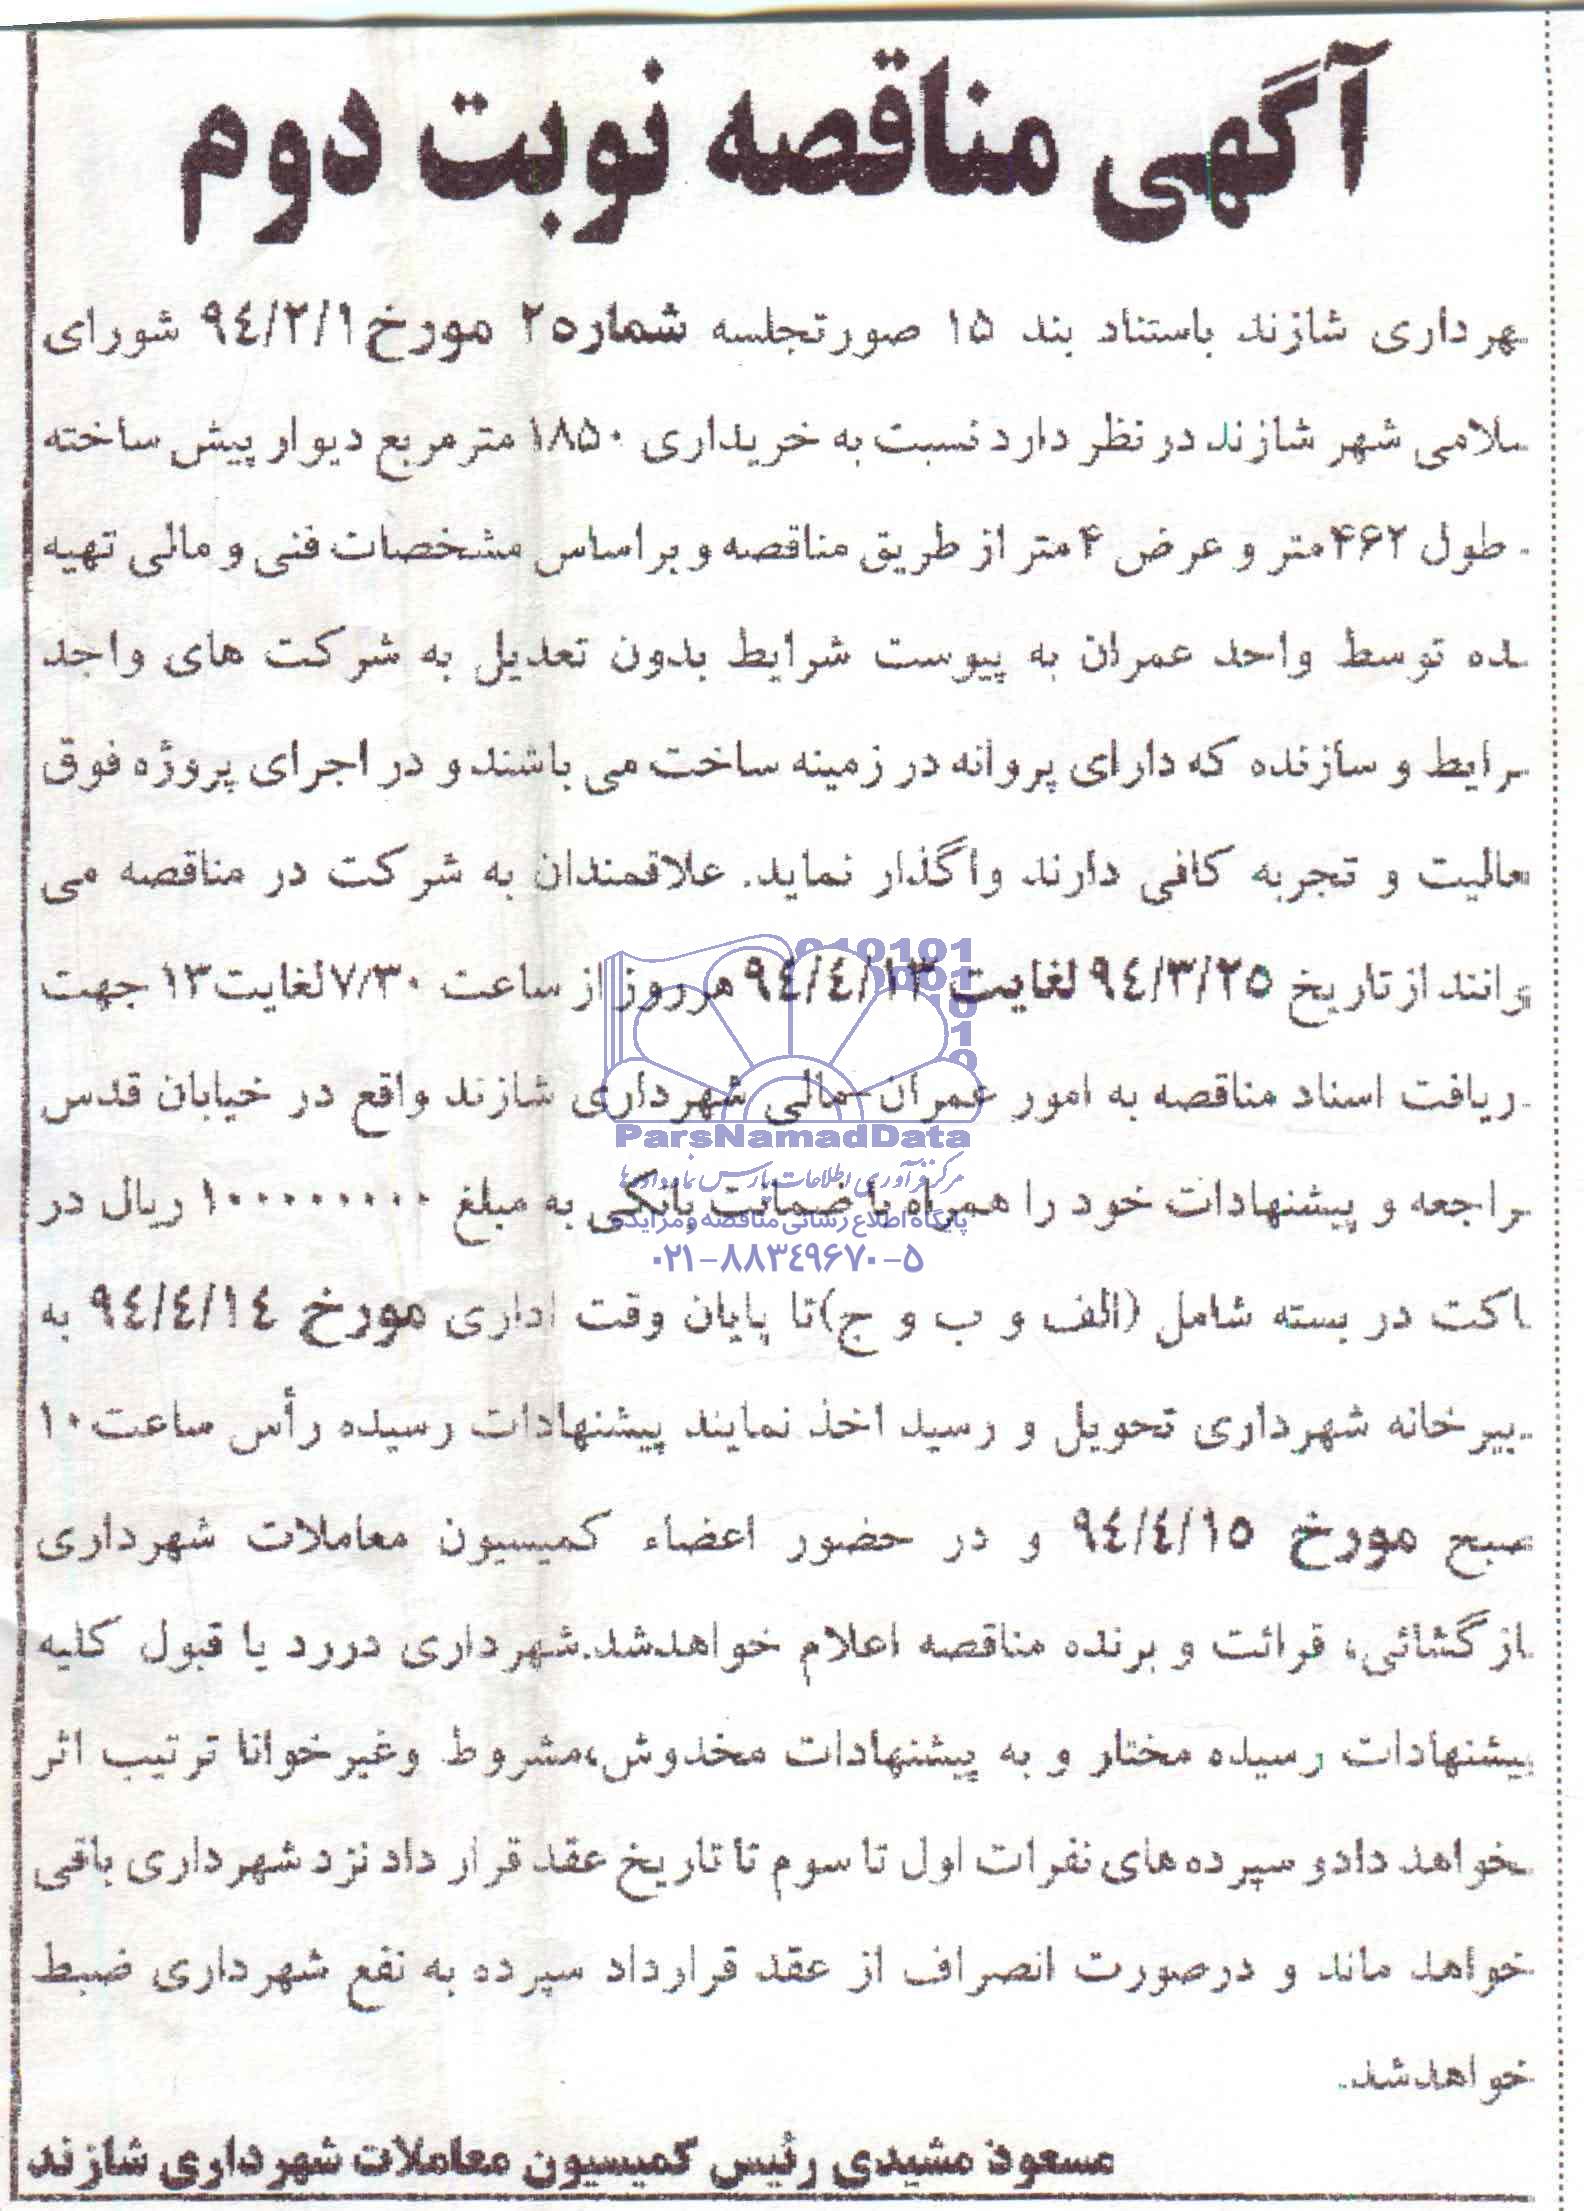 آگهی مناقصه نوبت دوم
هرداری شازند باستناد بند ۱۵ صورتجلسه شماره۲ مورخ ۹۴/۲/۱ شورای
سلامی شهر شازند در نظر دارد نسبت به خریداری ۱۸۵۰ مترمربع دیوار پیش ساخته
طول ۴۶۲ متر و عرض ۴ متر از طریق مناقصه و براساس مشخصات فنی و مالی تهیه
ده توسط واحد عمران به پیوست شرایط بدون تعدیل به شرکت های واجد
رایط و سازنده که دارای پروانه در زمینه ساخت می باشند و در اجرای پروژه فوق
عالیت و تجربه کافی دارند واگذار نماید. علاقمندان به شرکت در مناقصه می
وانند از تاریخ ۹۴/۳/۲۵ لغایت ۹۴/۴/۱۳ هر روز از ساعت ۷/۳۰ لغایت ۱۳ جهت
ریافت اسناد مناقصه به امور عمران-مالی شهرداری شازند واقع در خیابان قدس
راجعه و پیشنهادات خود را همراه با ضمانت بانکی به مبلغ ۱۰۰۰۰۰۰۰۰ ریال در
اکت در بسته شامل (الف و ب و ج)تا پایان وقت اداری مورخ ۹۴/۴/۱۴ به
بیرخانه شهرداری تحویل و رسید اخذ نمایند پیشنهادات رسیده رأس ساعت ۱۰
صبح مورخ ۹۴/۴/۱۵ و در حضور اعضاء کمیسیون معاملات شهرداری
ازگشائی، قرائت و برنده مناقصه اعلام خواهدشد.شهرداری دررد یا قبول کلیه
پیشنهادات رسیده مختار و به پیشنهادات مخدوش،مشروط وغیرخوانا ترتیب اثر
نخواهد دادو سپرده های نفرات اول تا سوم تا تاریخ عقد قرار داد نزد شهرداری باقی
خواهد ماند و درصورت انصراف از عقد قرارداد سپرده به نفع شهرداری ضبط
خواهدشد.
مسعود مشیدی رئیس کمیسیون معاملات شهرداری شازند
ParsNamadData
مرکز فرآوری اطلاعات پارس نماد داده ها
پایگاه اطلاع رسانی مناقصه و مزایده
۰۲۱-۸۸۳۴۹۶۷۰-۵